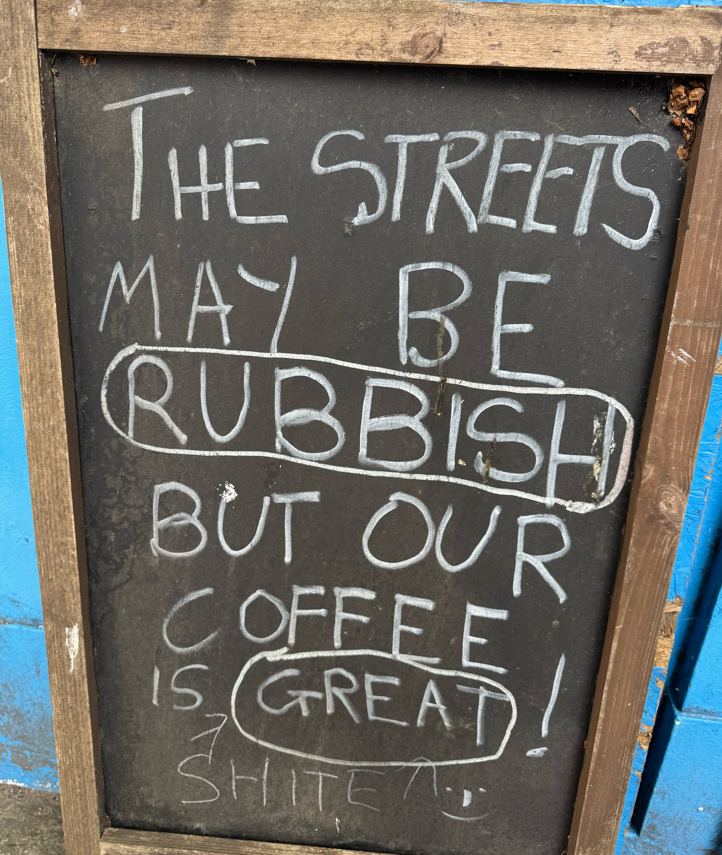 THE STREETS
MAY BE
RUBBISH
BUT OUR
COFFEE
IS GREAT!
SHITE